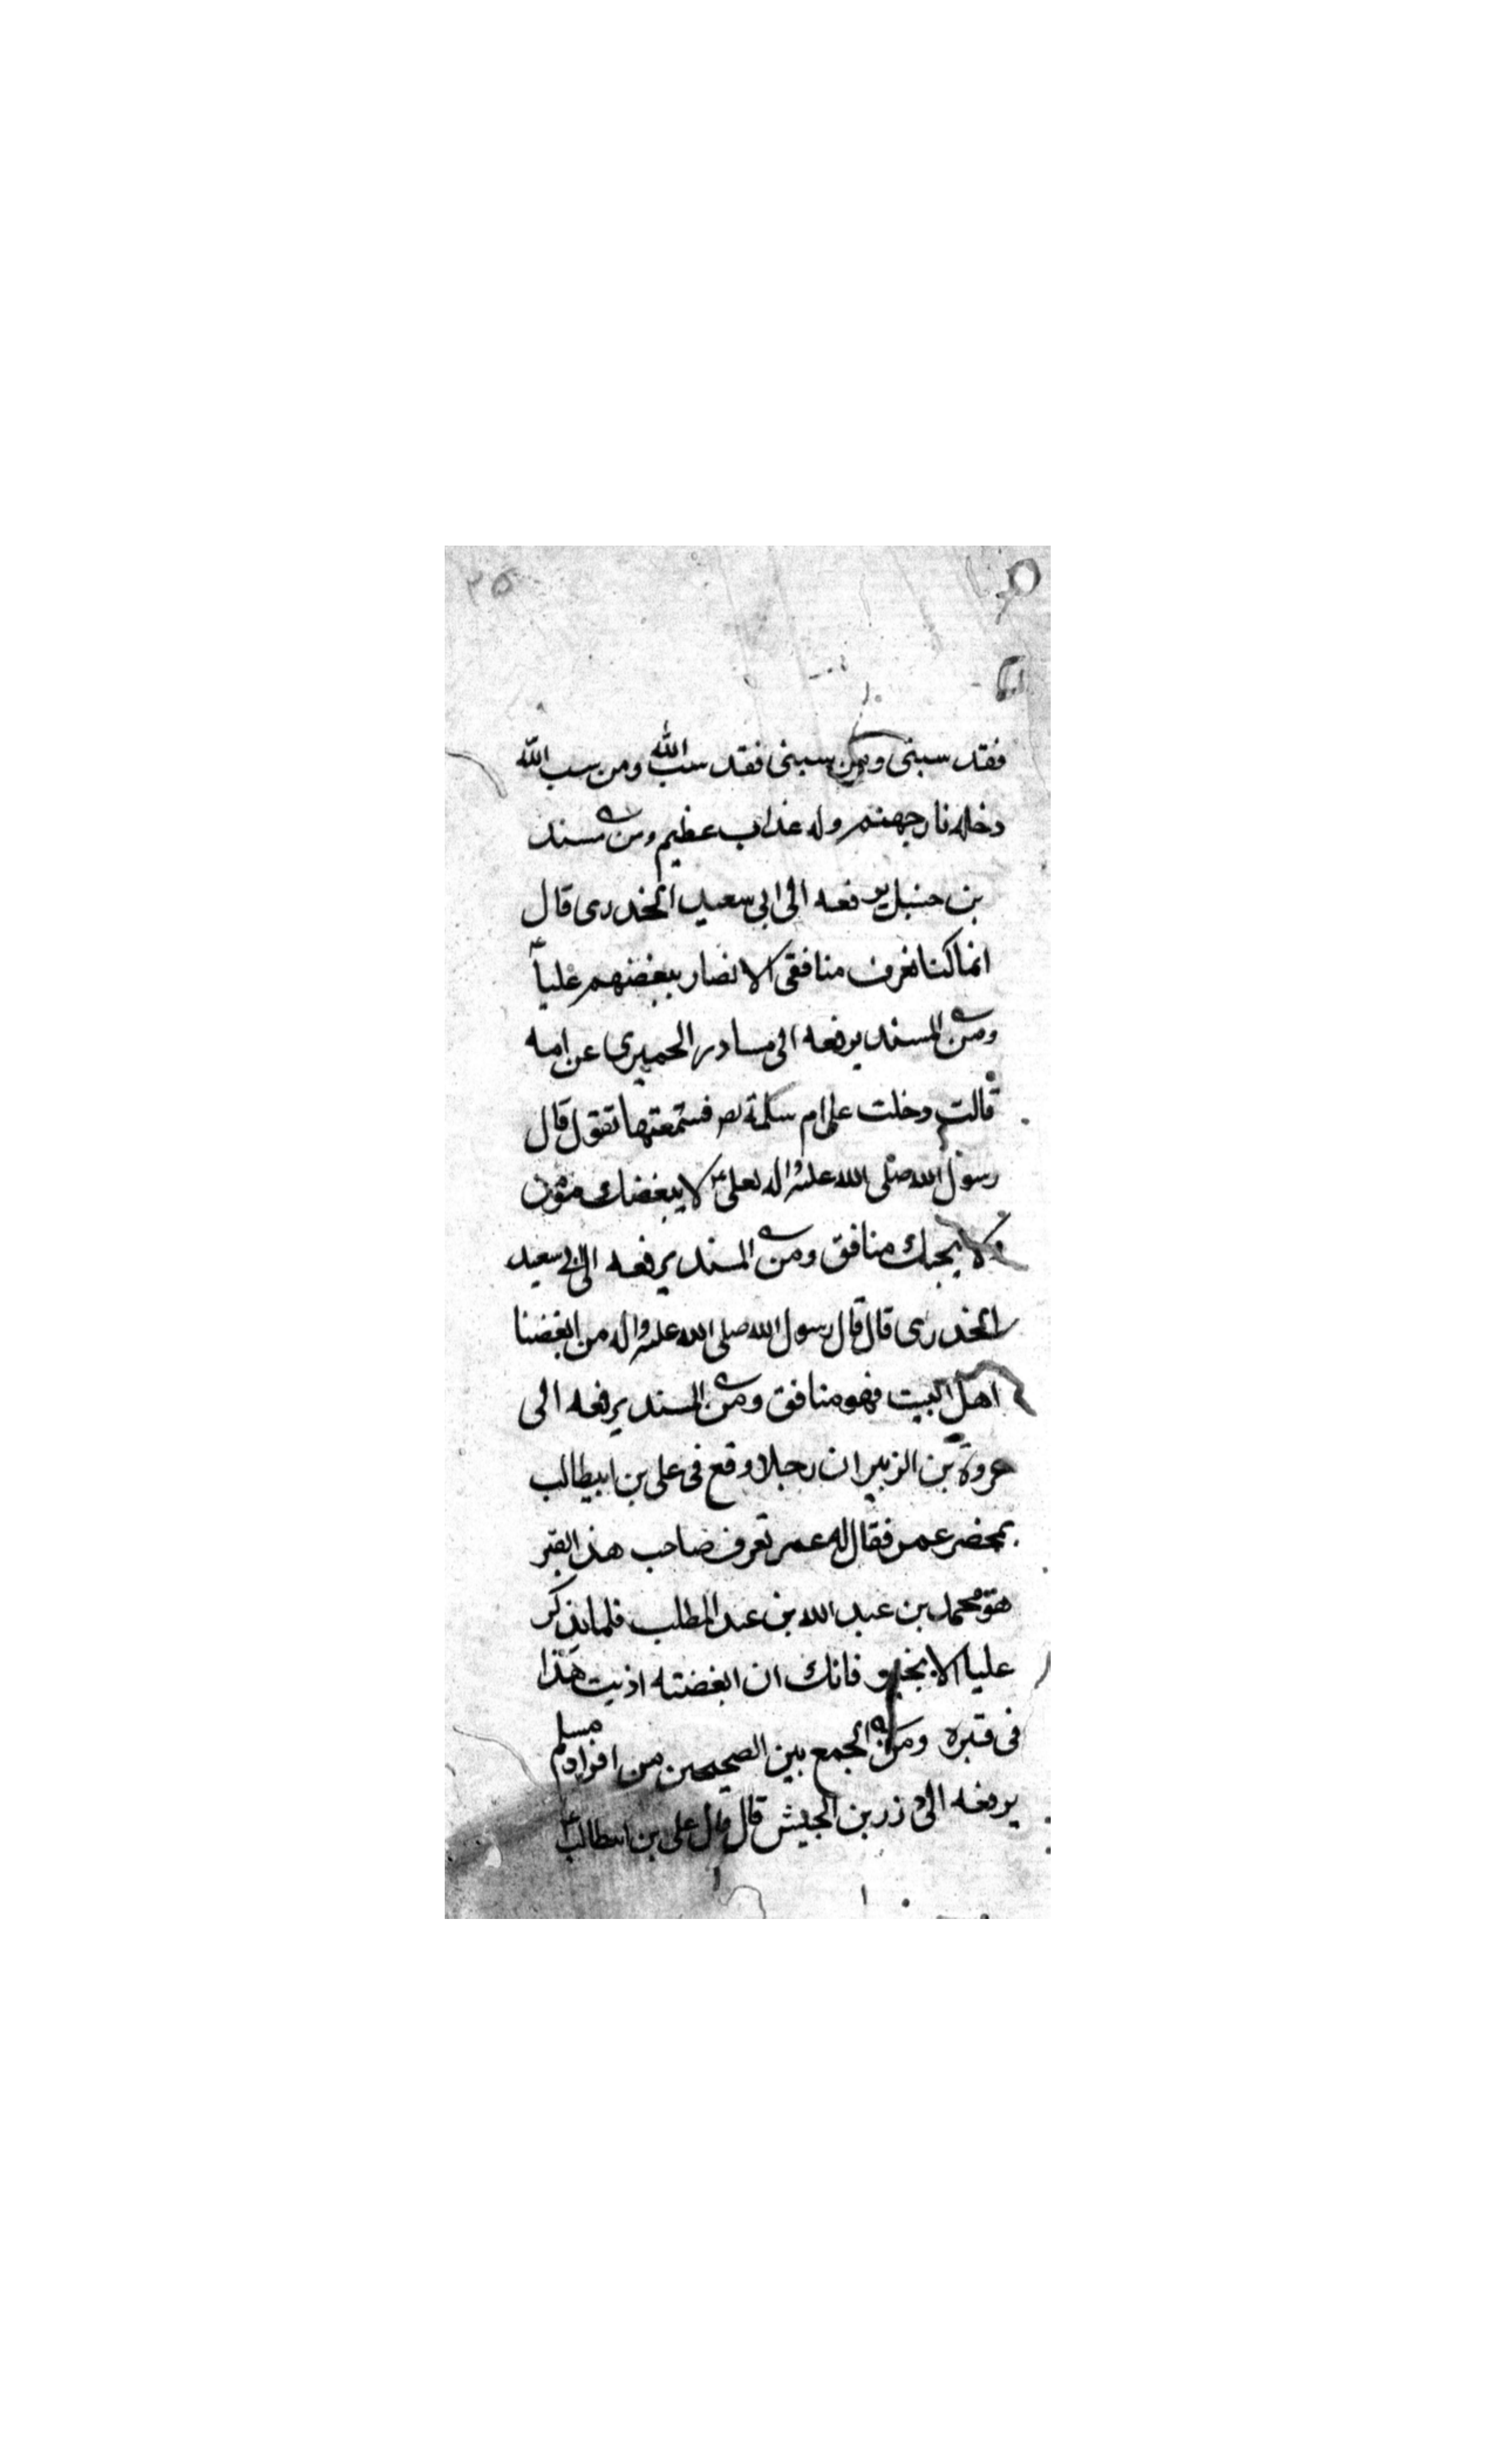 ٢٥
فقد سبنى ومن سبنى فقد سب الله ومن سب الله
دخله نار جهنم وله عذاب عظيم ومن مسند
بن حنبل يرفعه الى ابى سعيد الخدرى قال
انما كنا نعرف منافقى الانصار ببغضهم علياً
ومن المسند يرفعه الى مساور الحميرى عن امه
قالت دخلت على ام سلمة فسمعتها تقول قال
رسول الله صلى الله عليه واله لعلى لا يبغضك مؤمن
ولا يحبك منافق ومن المسند يرفعه الى ابى سعيد
الخدرى قال قال رسول الله صلى الله عليه واله من ابغضنا
اهل البيت فهو منافق ومن المسند يرفعه الى
عروة بن الزبير ان رجلا وقع فى على بن ابيطالب
بمحضر عمر فقال له عمر تعرف صاحب هذا القبر
هو محمد بن عبد الله بن عبد المطلب فلما تذكر
عليا الا بخير فانك ان ابغضته اذيت هذا
فى قبره ومن الجمع بين الصحيحين من افراد مسلم
يرفعه الى زر بن الجيش قال قال على بن ابيطالب